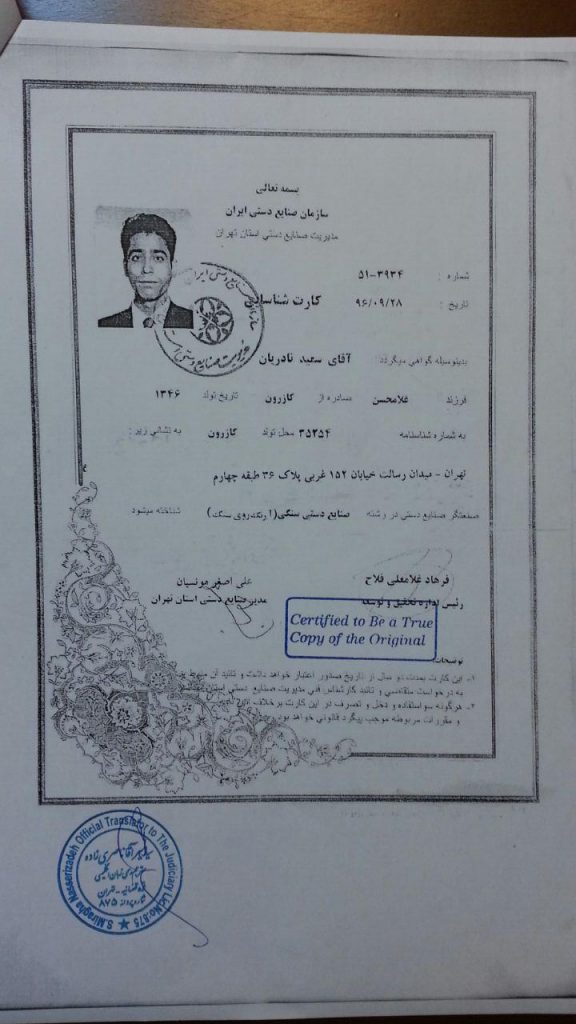 بسمه تعالی
سازمان صنایع دستی ایران
مدیریت صنایع دستی استان تهران
شماره : ۵۱-۳۹۳۴
تاریخ : ۹۶/۰۹/۲۸
کارت شناسایی
بدینوسیله گواهی میگردد : آقای سعید نادریان
فرزند غلامحسن صادره از کازرون تاریخ تولد ۱۳۴۶
به شماره شناسنامه ۳۵۲۵۴ محل تولد کازرون به نشانی زیر :
تهران - میدان رسالت خیابان ۱۵۲ غربی پلاک ۳۶ طبقه چهارم
صنعتگر صنایع دستی در رشته صنایع دستی سنگی( سنگ) شناخته میشود
فرهاد غلامعلی فلاح
رئیس اداره تحقیق و توسعه
علی اصغر مونسیان
مدیر صنایع دستی استان تهران
Certified to Be a True
Copy of the Original
توضیحات:
۱- این کارت بمدت دو سال از تاریخ صدور اعتبار خواهد داشت و تائید آن
به درخواست متقاضی و تائید کارشناس فنی مدیریت صنایع دستی استان
۲- هرگونه سوء استفاده و دخل و تصرف در این کارت بر خلاف
و مقررات مربوطه موجب پیگرد قانونی خواهد بود
S.Miragha Nasserizadeh Official Translator to The Judiciary Lic.No.875